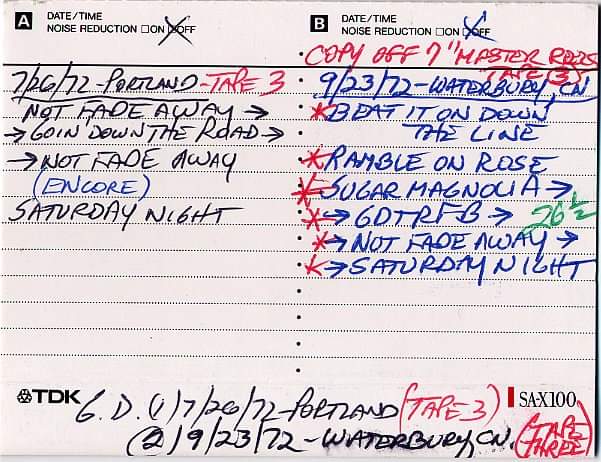 A DATE/TIME
NOISE REDUCTION □ON ☒OFF
7/26/72-PORTLAND-TAPE 3
NOT FADE AWAY →
→ GOIN DOWN THE ROAD →
→ NOT FADE AWAY
(ENCORE)
SATURDAY NIGHT
B DATE/TIME
NOISE REDUCTION □ON ☒OFF
COPY OFF 7" MASTER REELS
(TAPE (3)
9/23/72-WATERBURY, CN
*BEAT IT ON DOWN
THE LINE
*RAMBLE ON ROSE
*SUGAR MAGNOLIA →
*→ GDTRFB → 26 1/2
*→ NOT FADE AWAY →
*→ SATURDAY NIGHT
TDK G.D. (1) 7/26/72-PORTLAND (TAPE 3) SA-X100
(2) 9/23/72-WATERBURY, CN. (TAPE
THREE)